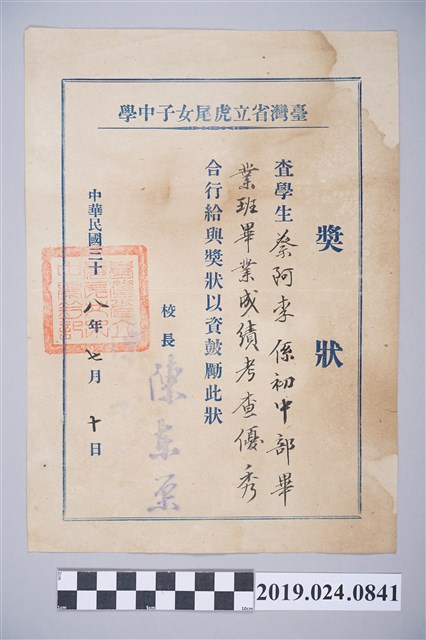 學中子女尾虎立省灣臺
獎狀
查學生蔡阿李係初中部畢
業班畢業成績考查優秀
合行給與獎狀以資鼓勵此狀
校長 陳東原
中華民國三十八年七月十日
2019.024.0841